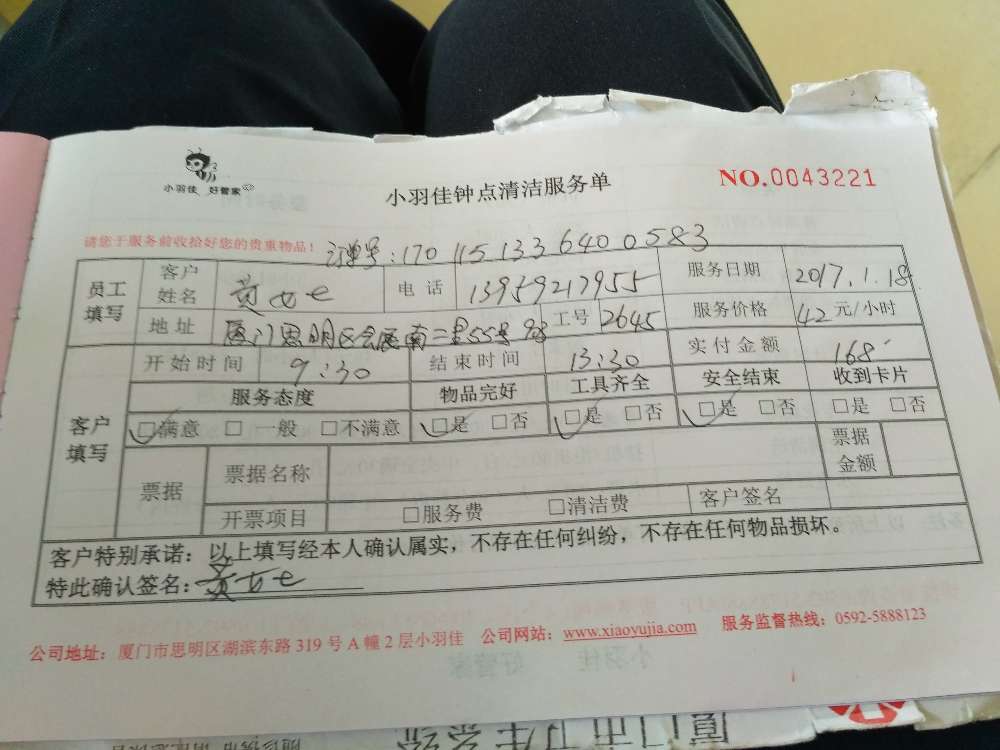 小羽佳 好管家
小羽佳钟点清洁服务单
NO.0043221
请您于服务前收拾好您的贵重物品！
订单号：170 115 133 6400583
员工填写
客户姓名 黄 电话 13959217955 服务日期 2017.1.18
地址 厦门思明区会展南二里55号 工号 2645 服务价格 42元/小时
开始时间 9:30 结束时间 13:30 实付金额 168
客户填写
服务态度 物品完好 工具齐全 安全结束 收到卡片
☑满意 □一般 □不满意 ☑是 □否 ☑是 □否 ☑是 □否 □是 □否
票据 票据名称 票据金额
开票项目 □服务费 □清洁费 客户签名
客户特别承诺：以上填写经本人确认属实，不存在任何纠纷，不存在任何物品损坏。
特此确认签名：黄
公司地址：厦门市思明区湖滨东路 319 号 A 幢 2 层小羽佳 公司网站：www.xiaoyujia.com 服务监督热线：0592-5888123